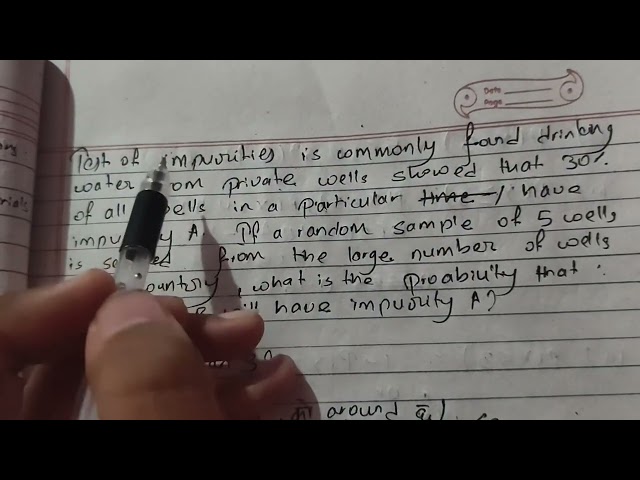 Date
Page
Test of impurities is commonly found drinking
water from private wells showed that 30%
of all wells in a particular time / have
impurity A. If a random sample of 5 wells
is from the large number of wells
country, what is the probability that :
will have impurity A?
around